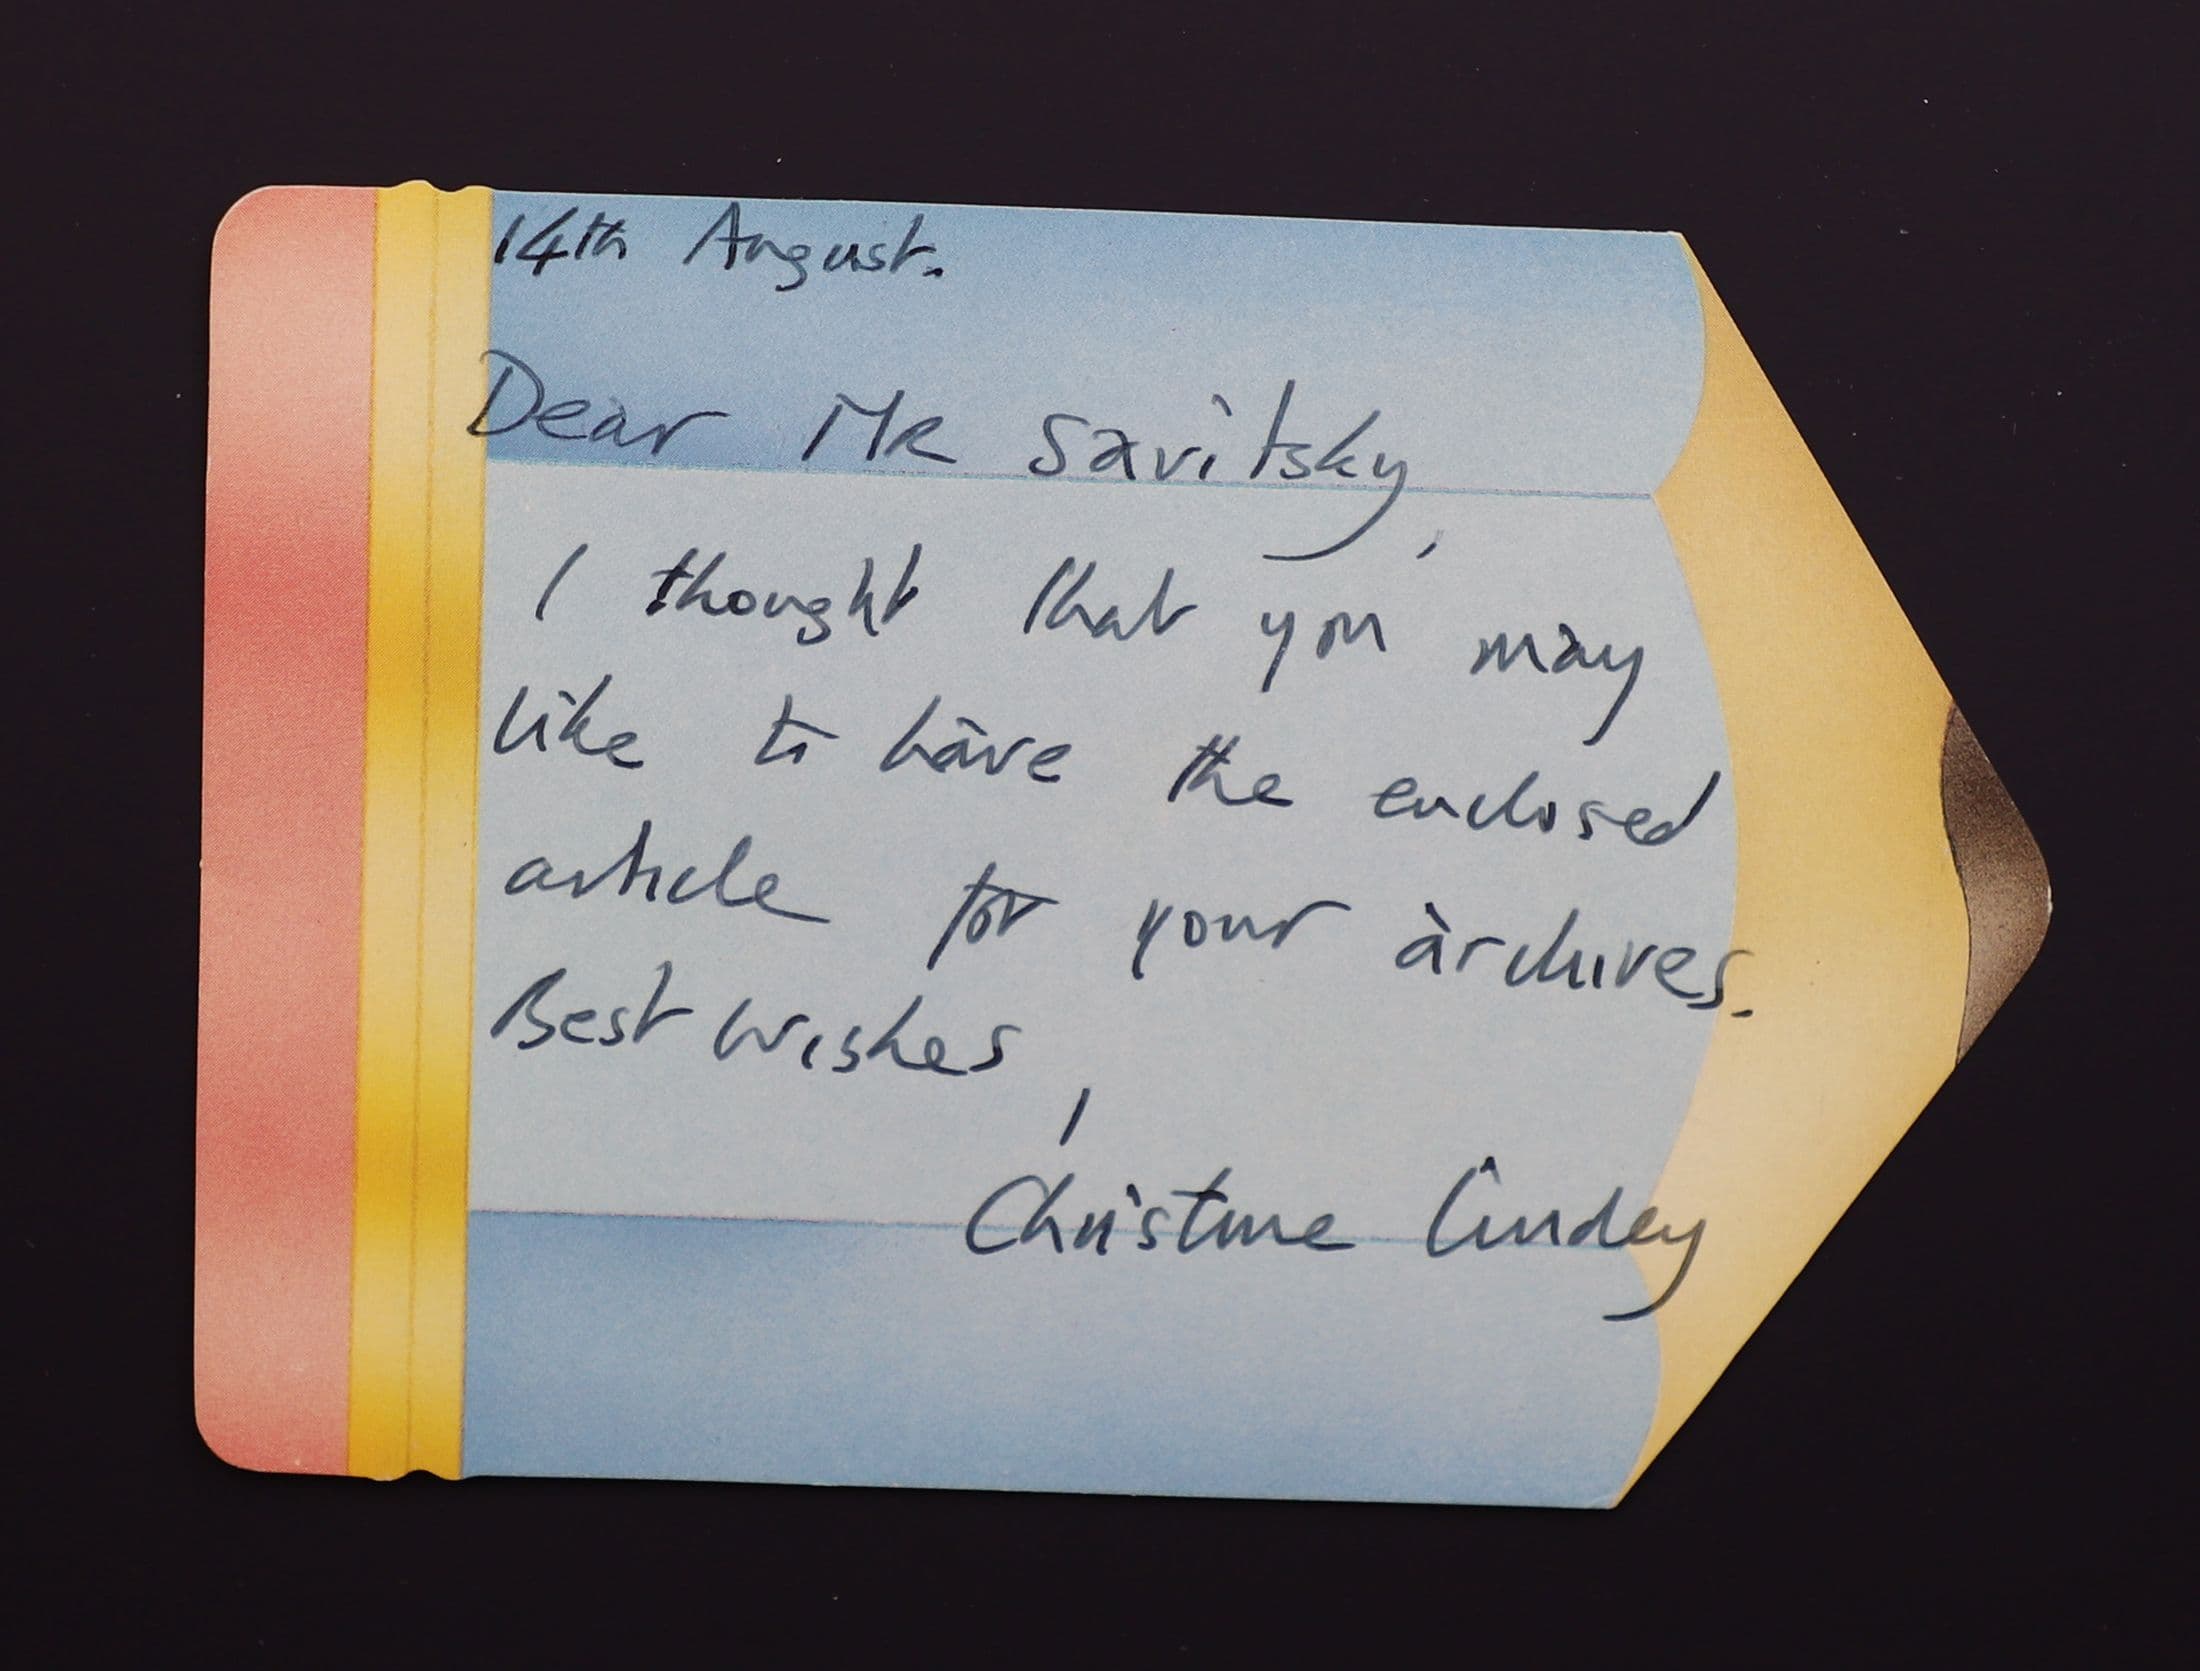 14th August.
Dear Mr Savitsky,
I thought that you may
like to have the enclosed
article for your archives.
Best Wishes,
Christine Lindey